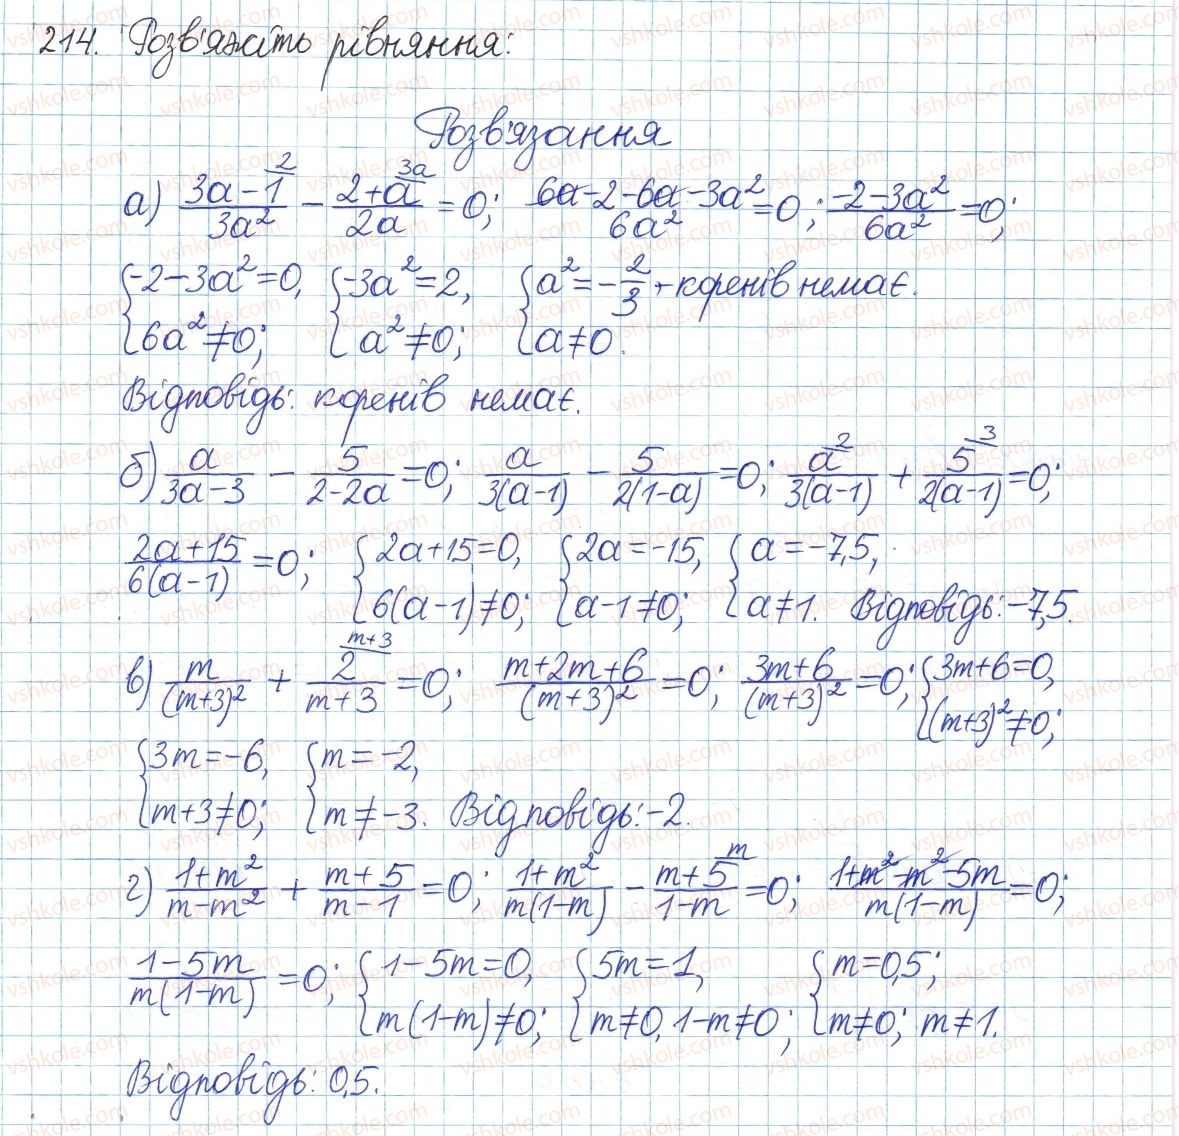 214. Розв'яжіть рівняння:
Розв'язання
а) (3a-1)/(3a²) [2] - (2+a)/(2a) [3a] = 0; (6a-2-6a-3a²)/(6a²) = 0; (-2-3a²)/(6a²) = 0;
{-2-3a²=0, 6a²≠0; {-3a²=2, a²≠0; {a²=-2/3 + коренів немає. a≠0.
Відповідь: коренів немає.
б) a/(3a-3) - 5/(2-2a) = 0; a/(3(a-1)) - 5/(2(1-a)) = 0; a/(3(a-1)) [2] + 5/(2(a-1)) [3] = 0;
(2a+15)/(6(a-1)) = 0; {2a+15=0, 6(a-1)≠0; {2a=-15, a-1≠0; {a=-7,5, a≠1. Відповідь: -7,5.
в) m/(m+3)² + 2/(m+3) [m+3] = 0; (m+2m+6)/(m+3)² = 0; (3m+6)/(m+3)² = 0; {3m+6=0, (m+3)²≠0;
{3m=-6, m+3≠0; {m=-2, m≠-3. Відповідь: -2.
г) (1+m²)/(m-m²) + (m+5)/(m-1) = 0; (1+m²)/(m(1-m)) - (m+5)/(1-m) [m] = 0; (1+m²-m²-5m)/(m(1-m)) = 0;
(1-5m)/(m(1-m)) = 0; {1-5m=0, m(1-m)≠0; {5m=1, m≠0, 1-m≠0; {m=0,5; m≠0; m≠1.
Відповідь: 0,5.